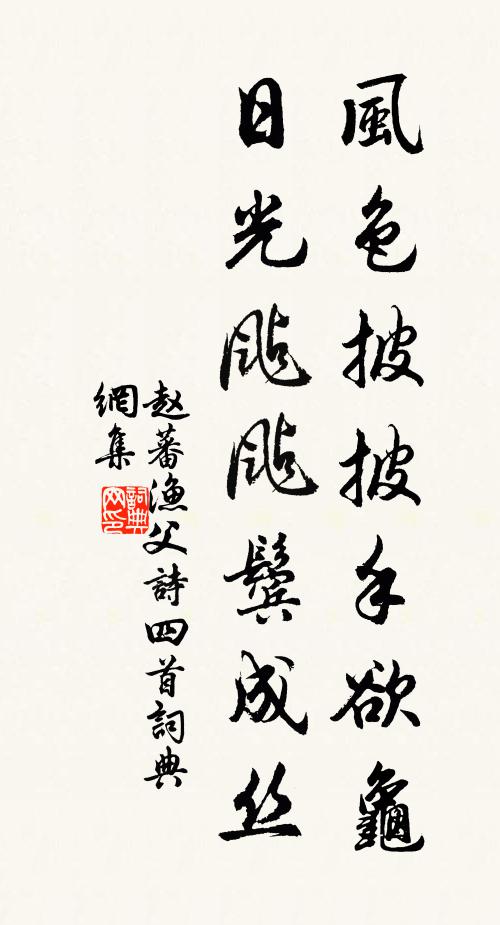 風色披披手欲龜
日光颭颭鬢成丝
赵蕃漁父詩四首詞典
網集
詞典
网印